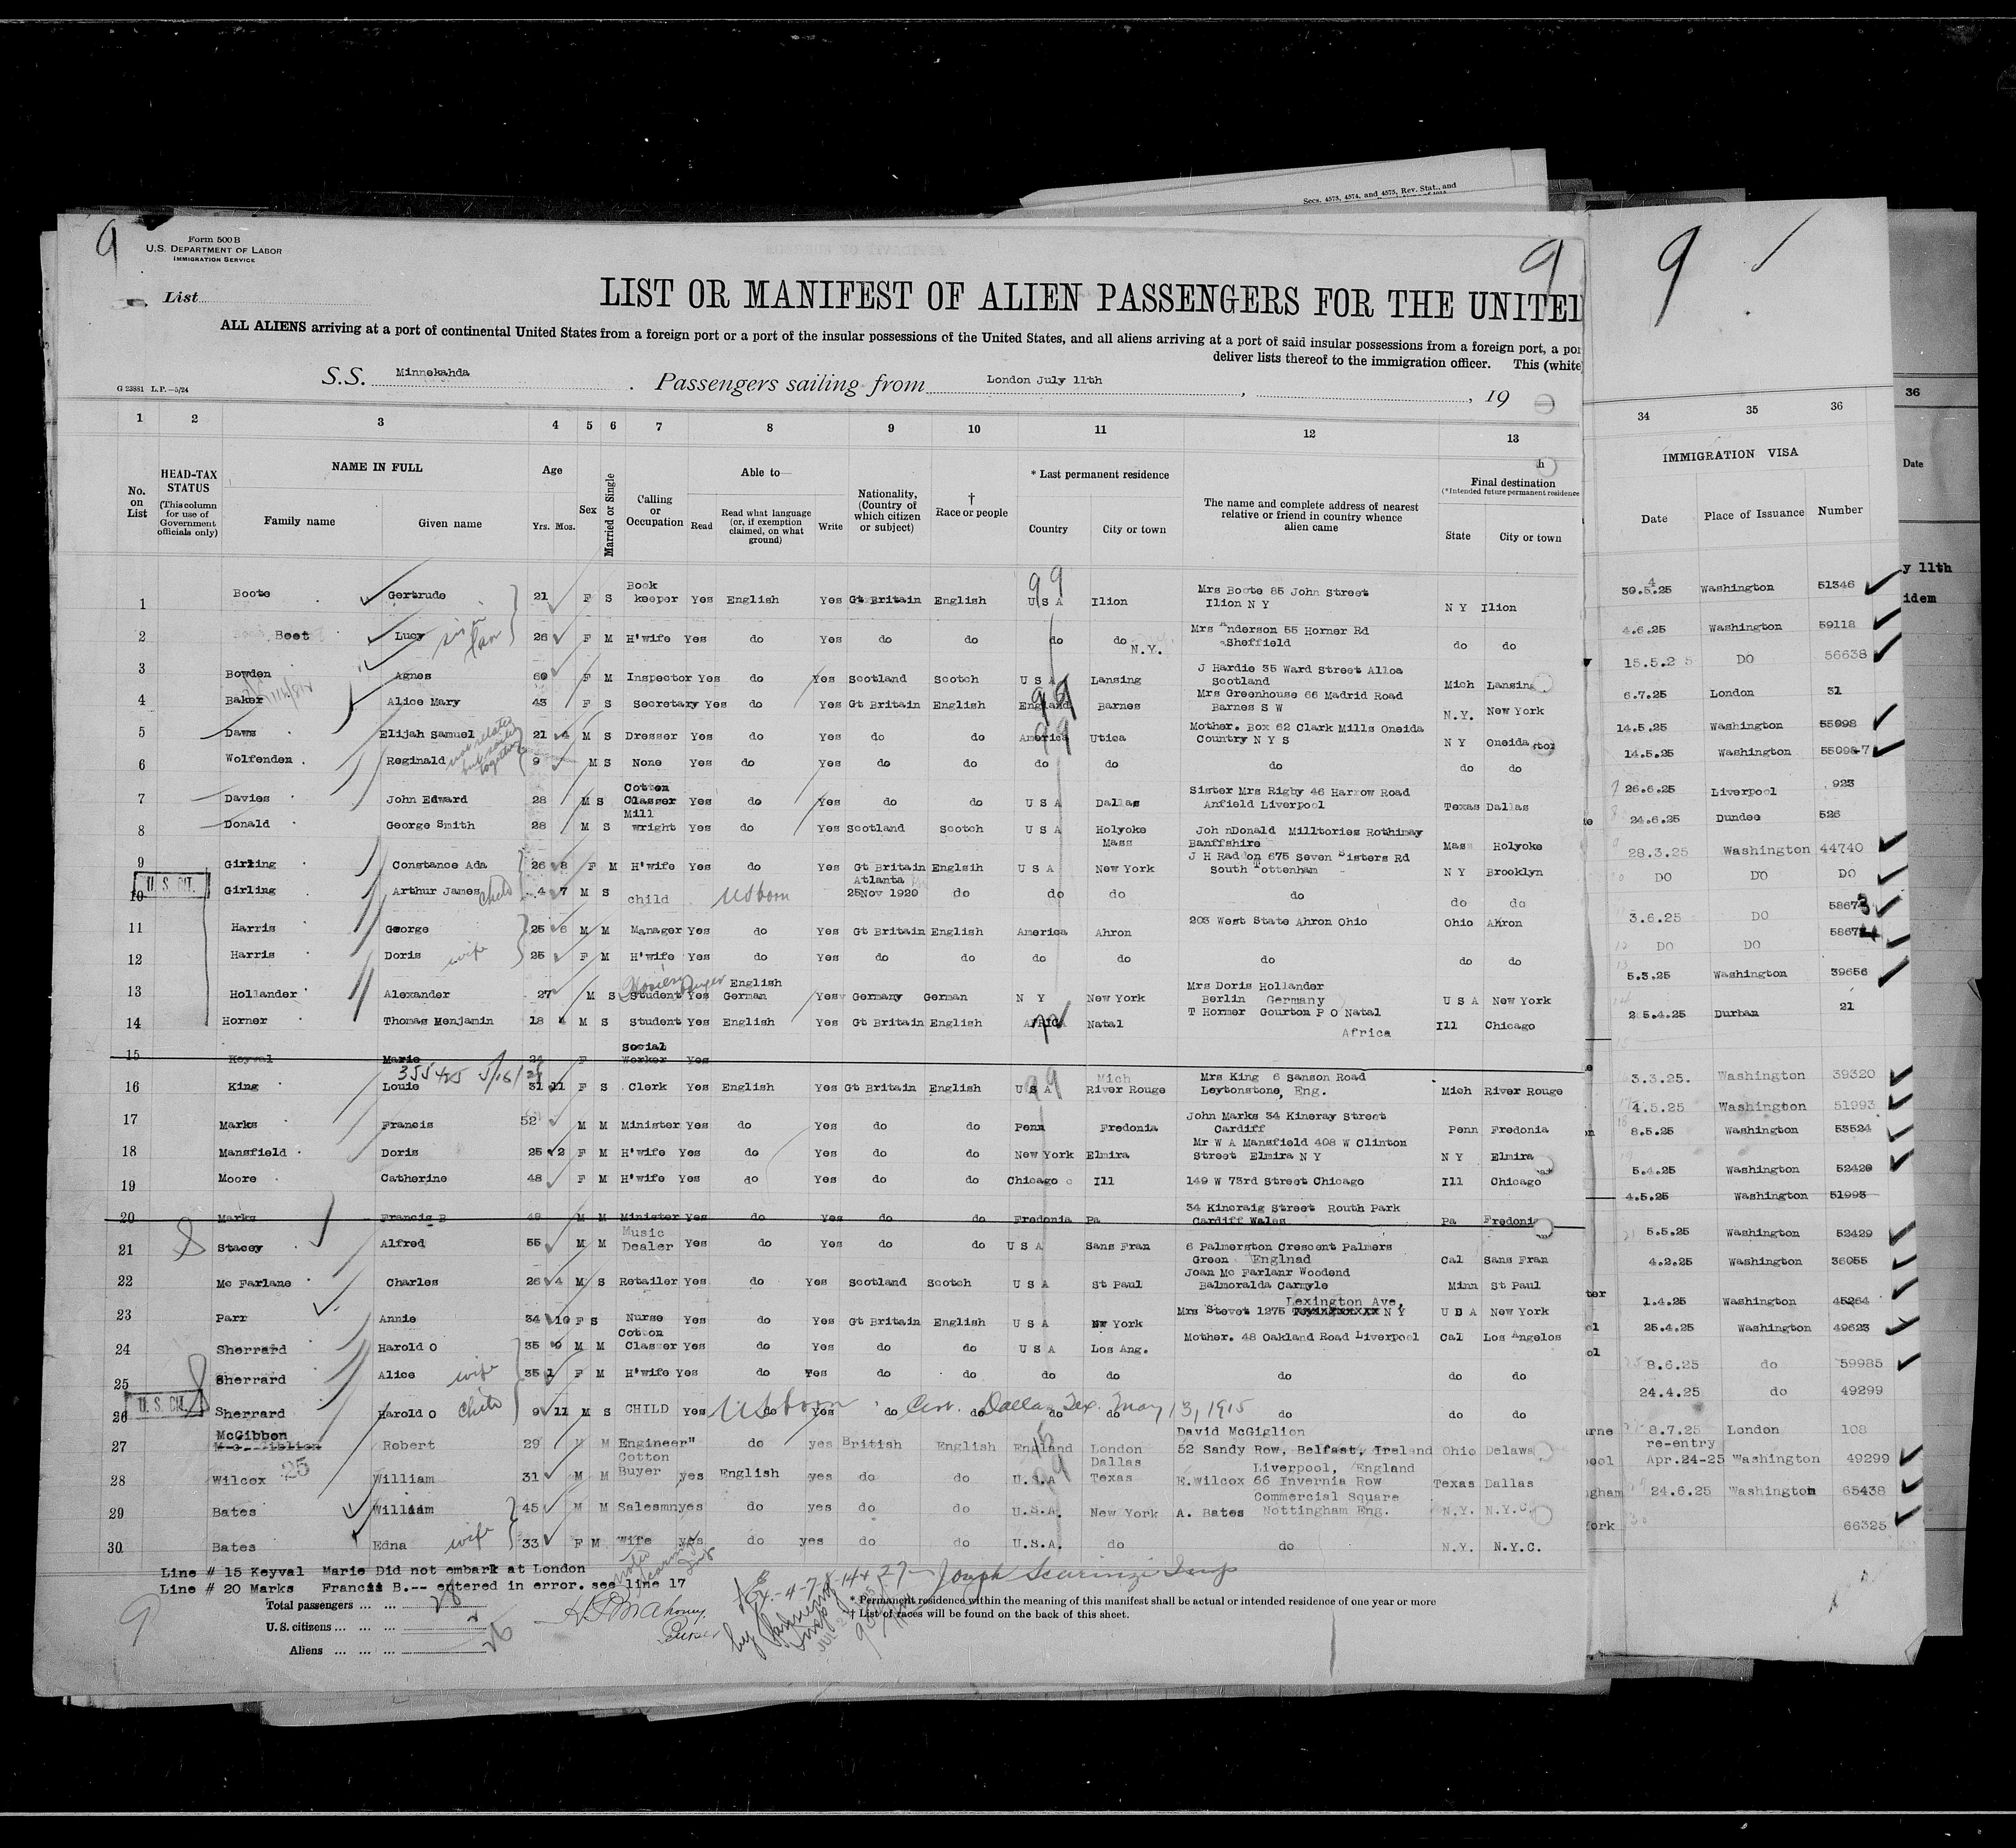 Secs. 4573, 4574, and 4575, Rev. Stat., and
9
Form 500 B
U.S. DEPARTMENT OF LABOR
IMMIGRATION SERVICE
9
9
List
LIST OR MANIFEST OF ALIEN PASSENGERS FOR THE UNITED
ALL ALIENS arriving at a port of continental United States from a foreign port or a port of the insular possessions of the United States, and all aliens arriving at a port of said insular possessions from a foreign port, a por
deliver lists thereof to the immigration officer. This (white
G 23881 L.P.—5/24
S.S. Minnekahda. Passengers sailing from London July 11th, , 19
1 2 3 4 5 6 7 8 9 10 11 12 13 34 35 36 36
No. on List
HEAD-TAX STATUS (This column for use of Government officials only)
NAME IN FULL
Family name Given name
Age
Yrs. Mos.
Sex
Married or Single
Calling or Occupation
Able to—
Read
Read what language (or, if exemption claimed, on what ground)
Write
Nationality, (Country of which citizen or subject)
† Race or people
* Last permanent residence
Country City or town
The name and complete address of nearest relative or friend in country whence alien came
Final destination
(*Intended future permanent residence
State City or town
IMMIGRATION VISA
Date Place of Issuance Number
Date
y 11th
idem
1 Boote Gertrude 21 F S Book keeper Yes English Yes Gt Britain English U S A Ilion Mrs Boote 85 John Street Ilion N Y N Y Ilion 30.5.25 Washington 51346
2 Boot Lucy 26 F M H'wife Yes do Yes do do do do N.Y. Mrs Anderson 55 Horner Rd Sheffield do do 4.6.25 Washington 59118
3 Bowden Agnes 60 F M Inspector Yes do Yes Scotland Scotch U S A Lansing J Hardie 35 Ward Street Alloa Scotland Mich Lansing 15.5.25 DO 56638
4 Baker Alice Mary 43 F S Secretary Yes do Yes Gt Britain English England Barnes Mrs Greenhouse 66 Madrid Road Barnes S W N.Y. New York 6.7.25 London 31
5 Daws Elijah Samuel 21 4 M S Dresser Yes do Yes do do America Utica Mother. Box 62 Clark Mills Oneida Country N Y S N Y Oneida 14.5.25 Washington 55098
6 Wolfenden Reginald 9 M S None Yes do Yes do do do do do do do 14.5.25 Washington 55098-7
7 Davies John Edward 28 M S Cotton Classer Yes do Yes do do U S A Dallas Sister Mrs Rigby 46 Harrow Road Anfield Liverpool Texas Dallas 26.6.25 Liverpool 923
8 Donald George Smith 28 M S Mill wright Yes do Yes Scotland Scotch U S A Holyoke Mass Joh nDonald Milltories Rothimay Banffshire Mass Holyoke 24.6.25 Dundee 526
9 Girling Constance Ada 26 8 F M H'wife Yes do Yes Gt Britain Englsih U S A New York J H Raddon 675 Seven Sisters Rd South Tottenham N Y Brooklyn 28.3.25 Washington 44740
U. S. CIT.
10 Girling Arthur James child 4 7 M S child US born Atlanta 25Nov 1920 do do do do do do DO DO DO
11 Harris George 25 6 M M Manager Yes do Yes Gt Britain English America Ahron 203 West State Ahron Ohio Ohio Akron 3.6.25 DO 58673
12 Harris Doris wife 25 F M H'wife Yes do Yes do do do do do do do DO DO 58674
13 Hollander Alexander 27 M S Student Yes English German Yes Germany German N Y New York Mrs Doris Hollander Berlin Germany U S A New York 5.3.25 Washington 39656
14 Horner Thomas Menjamin 18 4 M S Student Yes English Yes Gt Britain English Africa Natal T Hormer Gourton P O Natal Africa Ill Chicago 25.4.25 Durban 21
15 Keyval Marie 24 F Social Worker Yes
16 King Louie 31 11 F S Clerk Yes English Yes Gt Britain English U S A Mich River Rouge Mrs King 6 Sanson Road Leytonstone, Eng. Mich River Rouge 3.3.25. Washington 39320
17 Marks Francis 52 M M Minister Yes do Yes do do Penn Fredonia John Marks 34 Kincray Street Cardiff Penn Fredonia 4.5.25 Washington 51993
18 Mansfield Doris 25 2 F M H'wife Yes do Yes do do New York Elmira Mr W A Mansfield 408 W Clinton Street Elmira N Y N Y Elmira 8.5.25 Washington 53524
19 Moore Catherine 48 F M H'wife Yes do Yes do do Chicago Ill 149 W 73rd Street Chicago Ill Chicago 5.4.25 Washington 52420
20 Marks Francis B 49 M M Minister Yes do Yes do do Fredonia Pa 34 Kincraig Street Routh Park Cardiff Wales Pa Fredonia 4.5.25 Washington 51993
21 Stacey Alfred 55 M M Music Dealer Yes do Yes do do U S A Sans Fran 6 Palmerston Crescent Palmers Green Englnad Cal Sans Fran 5.5.25 Washington 52429
22 Mc Farlane Charles 26 4 M S Retailer Yes do Yes Scotland Scotch U S A St Paul Joan Mc Farlanr Woodend Balmoralda Carmyle Minn St Paul 4.2.25 Washington 36055
23 Parr Annie 34 10 F S Nurse Yes do Yes Gt Britain English U S A New York Mrs Stevet 1275 Lexington Ave, N Y U S A New York 1.4.25 Washington 45264
24 Sherrard Harold O 35 9 M M Cotton Classer Yes do Yes do do U S A Los Ang. Mother. 48 Oakland Road Liverpool Cal Los Angelos 25.4.25 Washington 49623
25 Sherrard Alice wife 35 1 F M H'wife Yes do Yes do do do do do do do 8.6.25 do 59985
U. S. CIT.
26 Sherrard Harold O child 9 11 M S CHILD Yes US born do Yes do do do do Dallas Tex. May 13, 1915 do do do 24.4.25 do 49299
27 McGibbon Robert 29 M M Engineer" do yes British English England London David McGiglion 52 Sandy Row, Belfast, Ireland Ohio Delawa 8.7.25 London 108
28 Wilcox 25 William 31 M M Cotton Buyer yes English yes do do U.S.A Dallas Texas E.Wilcox 66 Invernia Row Liverpool, England Texas Dallas re-entry Apr.24-25 Washington 49299
29 Bates William 45 M M Salesmn yes do yes do do U.S.A. New York A. Bates Commercial Square Nottingham Eng. N.Y. N.Y.C. 24.6.25 Washington 65438
30 Bates Edna wife 33 F M Wife yes do yes do do U.S.A. do do N.Y. N.Y.C. 66325
Line # 15 Keyval Marie Did not embark at London
Line # 20 Marks Francis B.-- entered in error. see line 17
Total passengers ... ... 28
U.S. citizens ... ... ... 2
Aliens ... ... ... 26
Purser
* Permanent residence within the meaning of this manifest shall be actual or intended residence of one year or more
† List of races will be found on the back of this sheet.